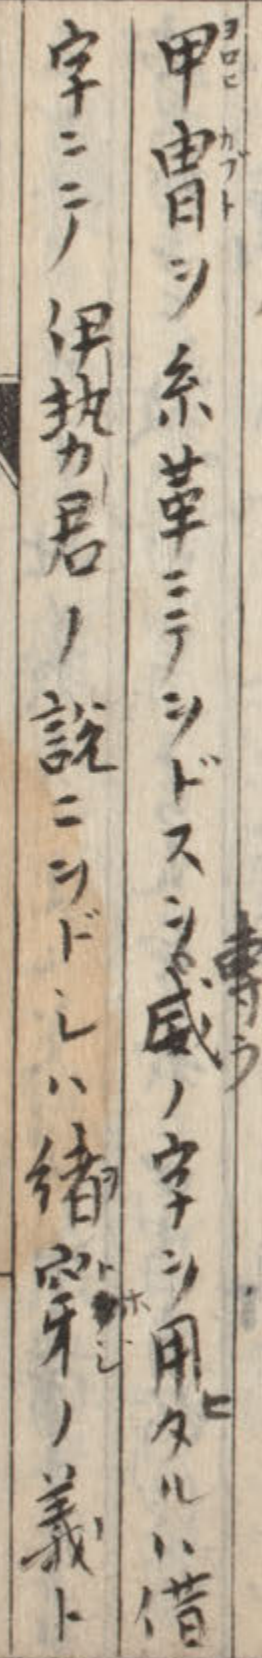 甲冑ヲ糸革ニテヲドスヲ專ラ威ノ字ヲ用ヒタルハ借
字ニテ伊勢君ノ説ニヲドシハ緒穿ノ義ト